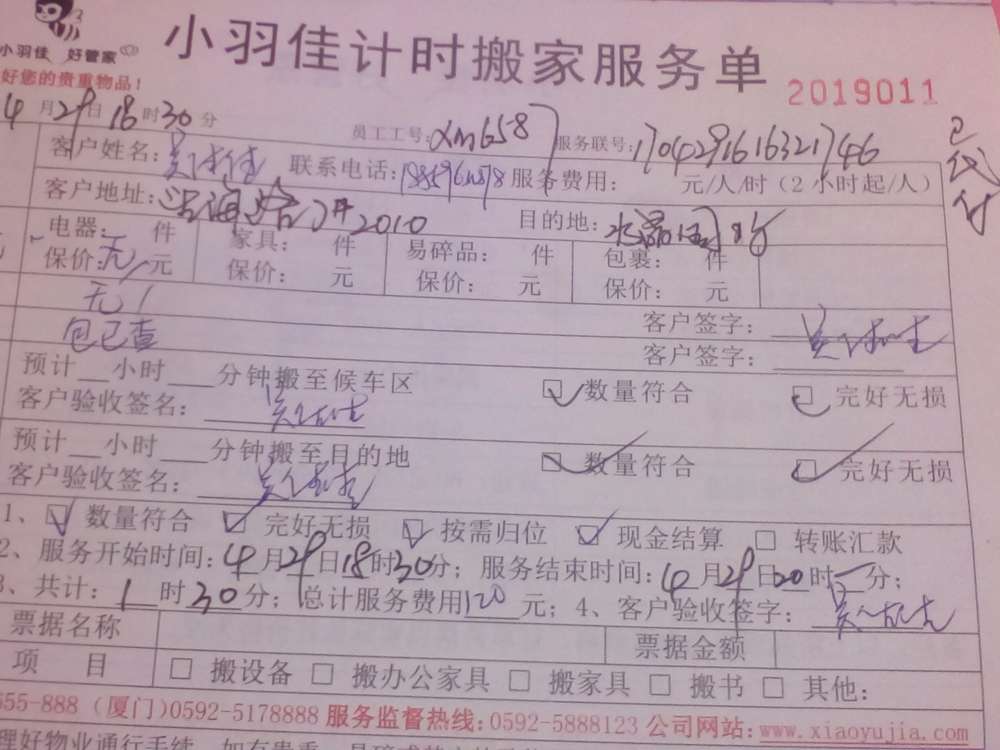 小羽佳 好管家
小羽佳计时搬家服务单
好您的贵重物品！
2019011
4月29日18时30分
员工工号：xm658 服务联号：1704291616321746
已代付
客户姓名： 联系电话： 服务费用： 元/人/时（2小时起/人）
客户地址： 2010 目的地：
电器： 件 家具： 件 易碎品： 件 包裹： 件
保价：无元 保价： 元 保价： 元 保价： 元
无
包已查
客户签字：
客户签字：
预计__小时___分钟搬至候车区 数量符合 完好无损
客户验收签名：
预计__小时___分钟搬至目的地 数量符合 完好无损
客户验收签名：
1、 数量符合 完好无损 按需归位 现金结算 □ 转账汇款
2、服务开始时间：4月29日18时30分；服务结束时间：4月29日20时 分；
3、共计：1时30分；总计服务费用120元；4、客户验收签字：
票据名称 票据金额
项 目 □ 搬设备 □ 搬办公家具 □ 搬家具 □ 搬书 □ 其他：
555-888（厦门)0592-5178888 服务监督热线：0592-5888123 公司网站：www.xiaoyujia.com
理好物业通行手续